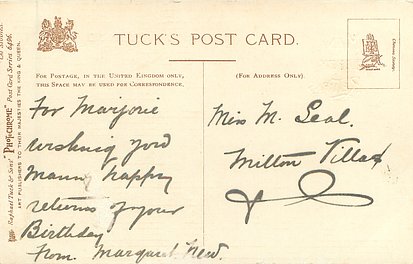 TUCK'S POST CARD.
FOR POSTAGE, IN THE UNITED KINGDOM ONLY,
THIS SPACE MAY BE USED FOR CORRESPONDENCE.
(FOR ADDRESS ONLY).
For Marjorie
wishing you
Many happy
returns of your
Birthday
From. Margaret New.
Miss M. Seal.
Milton Villas
Raphael Tuck & Sons' "PHOTOCHROME" Post Card Series 6496.
ART PUBLISHERS TO THEIR MAJESTIES THE KING & QUEEN.